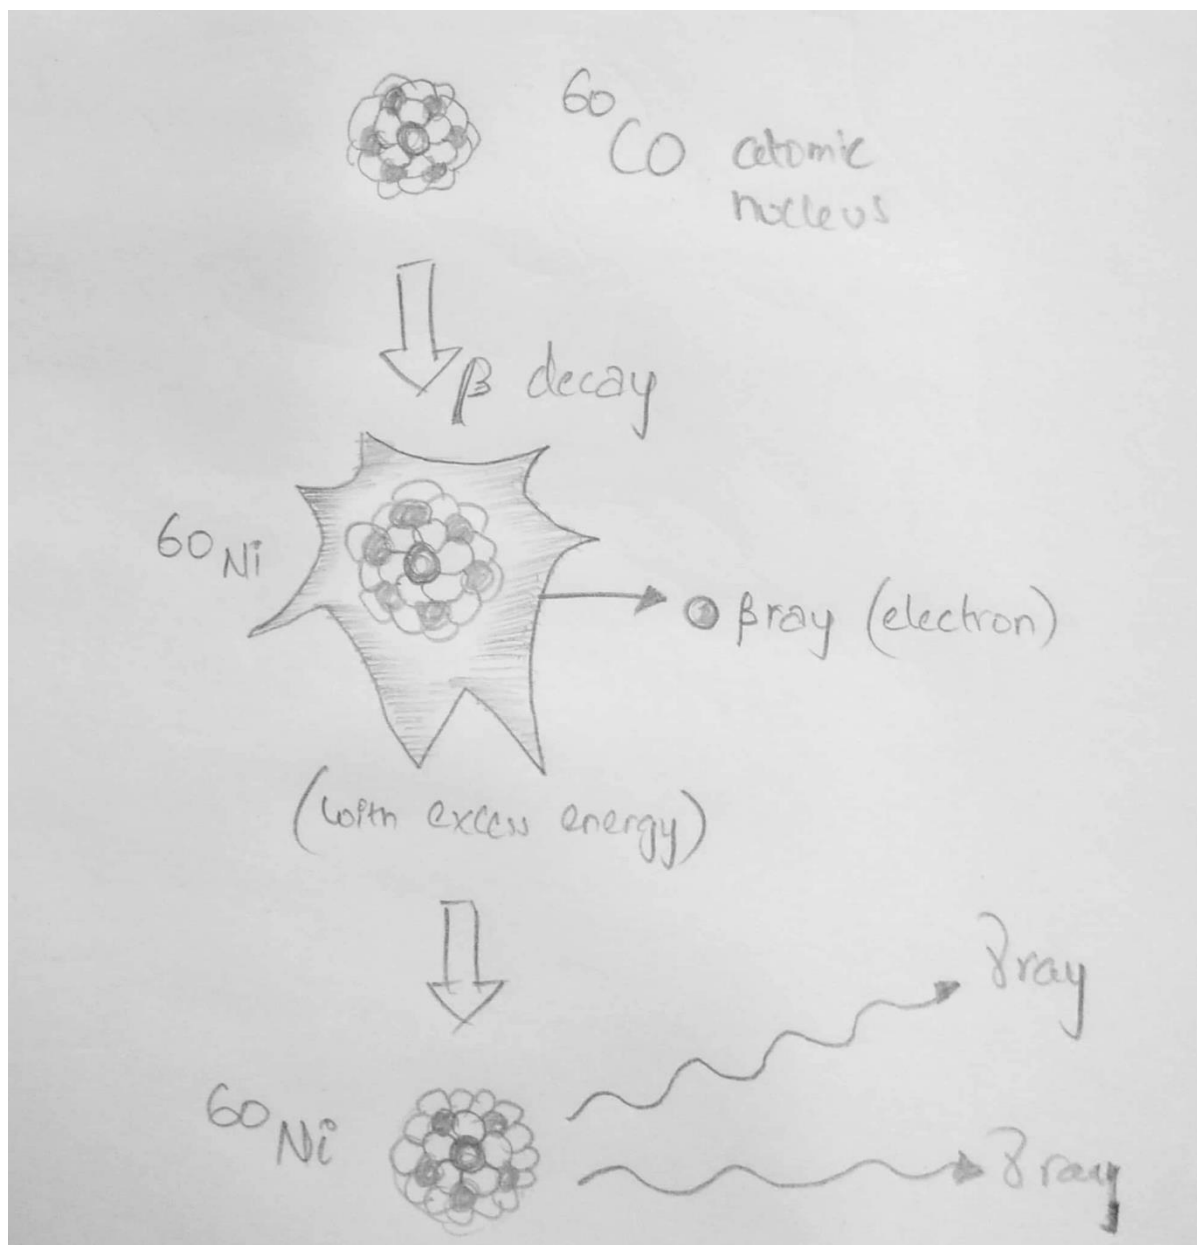 ⁶⁰CO atomic
nucleus
β decay
⁶⁰Ni
βray (electron)
(with excess energy)
γray
⁶⁰Ni
γray